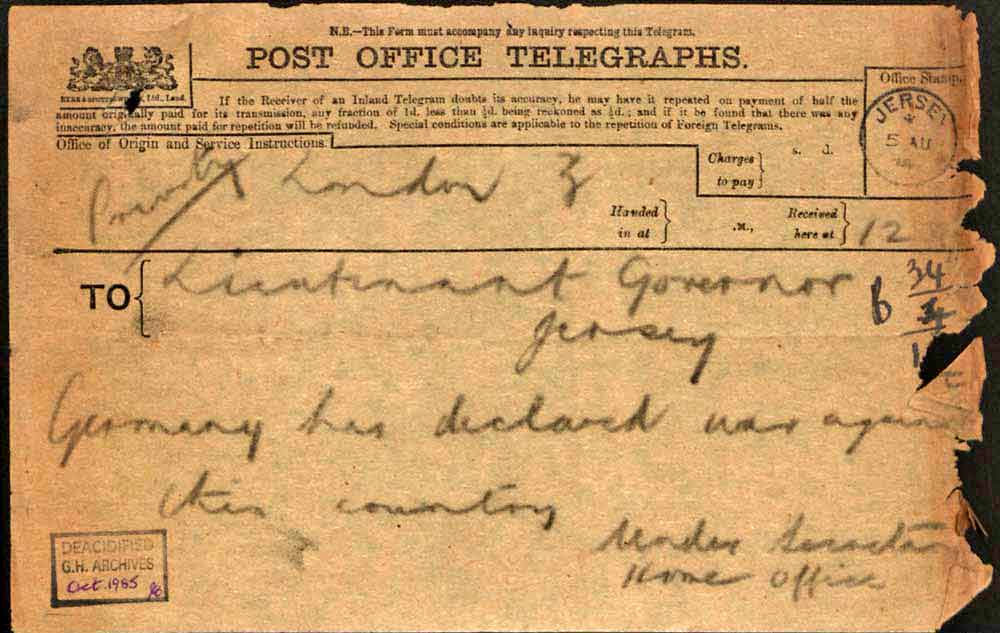 N.B.—This Form must accompany any inquiry respecting this Telegram.
POST OFFICE TELEGRAPHS.
If the Receiver of an Inland Telegram doubts its accuracy, he may have it repeated on payment of half the
amount originally paid for its transmission, any fraction of 1d. less than ½d. being reckoned as ½d.; and if it be found that there was any
inaccuracy, the amount paid for repetition will be refunded. Special conditions are applicable to the repetition of Foreign Telegrams.
Office of Origin and Service Instructions.
Office Stamp.
JERSEY
5 AU
Priority London
Charges to pay
s. d.
Handed in at
.M.,
Received here at
12
TO
Lieutenant Governor
Jersey
34
Germany has declared war
this country
Under
Home Office
DEACIDIFIED
G.H. ARCHIVES
Oct. 1985